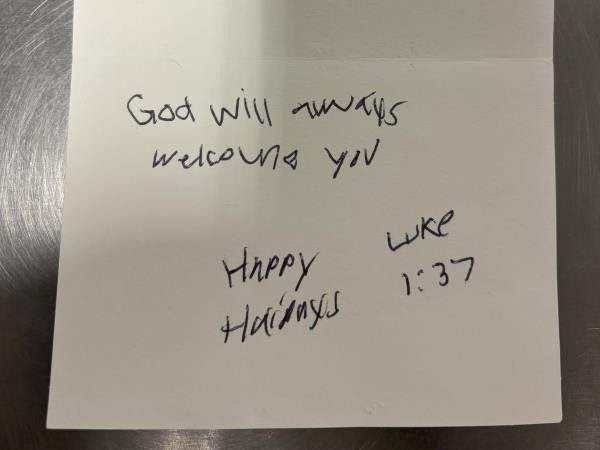 God will always
welcome you
Happy
Holidays
Luke
1:37